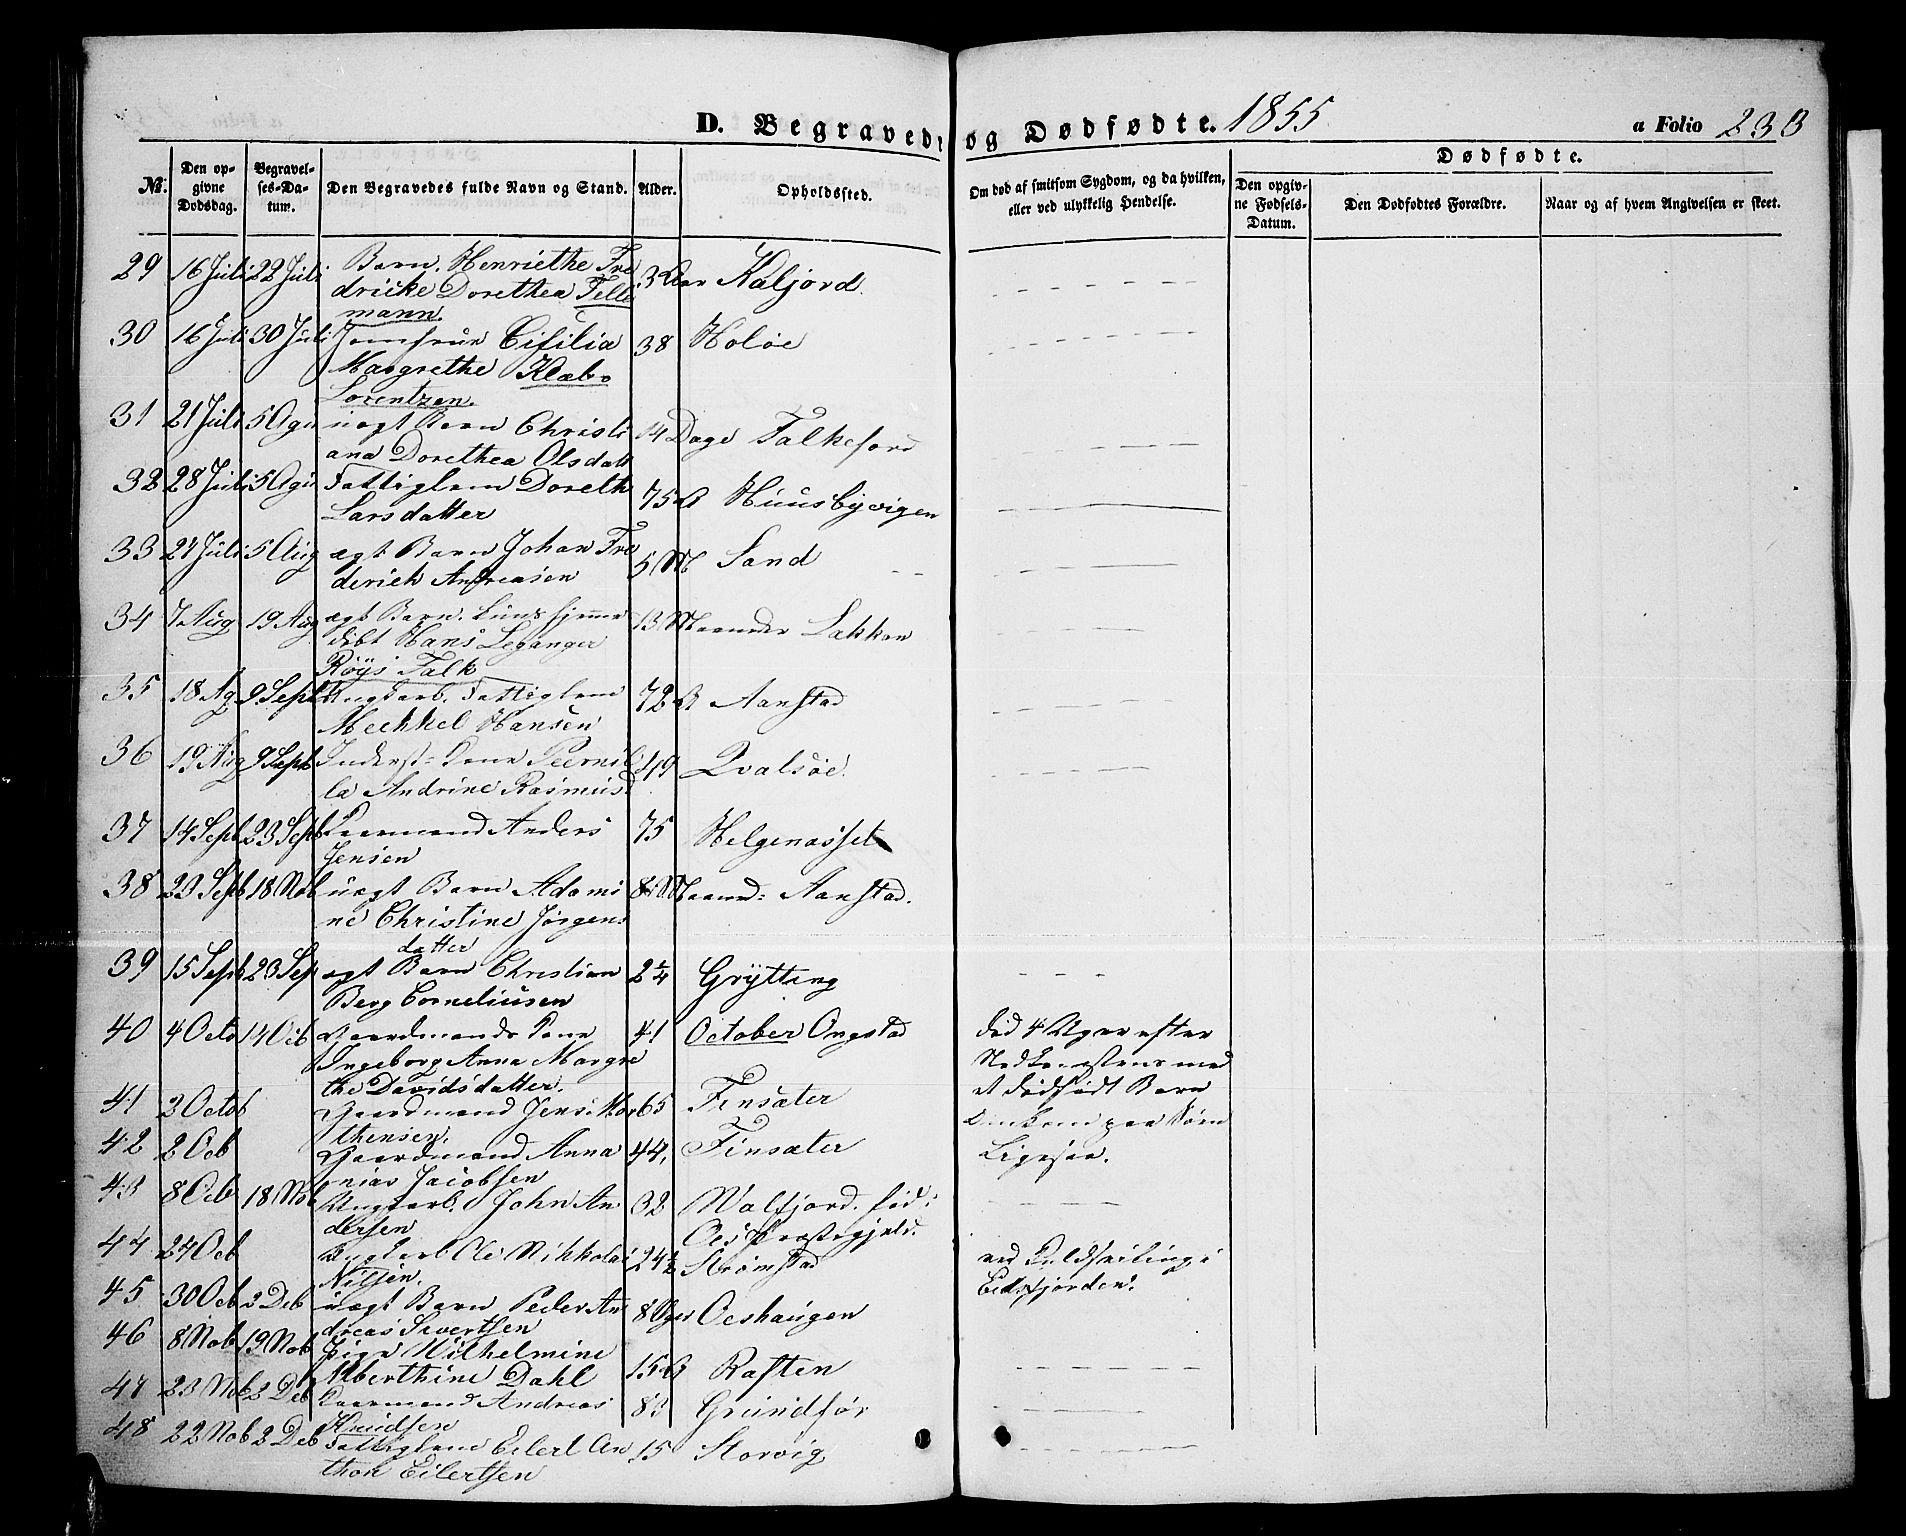 D. Begravede og Dødfødte. 1855
a Folio 233
Dødfødte.
No. Den opgivne Dødsdag. Begravelses-Datum. Den Begravedes fulde Navn og Stand. Alder. Opholdssted. Om død af smitsom Sygdom, og da hvilken, eller ved ulykkelig Hendelse. Den opgivne Fødsels-Datum. Den Dødfødtes Forældre. Naar og af hvem Angivelsen er skeet.
29 16 Juli 22 Juli Barn. Henriethe Fre
dricke Dorethea Telle 3 Aar Kaljord.
mann.
30 16 Juli 30 Juli Jomfrue Cisilia 38 Holøe
Margrethe Klæbo
Lorentzen.
31 21 Juli 5 Agu uægt Barn Christi
ana Dorethea Olsdatt 14 Dage Falkefjord
32 28 Juli 5 Agu Fattiglem Doreth
Larsdatter 75 A Huusbyvigen
33 24 Juli 5 Aug ægt Barn Johan Fre
derich Andreasen 5 M Sand
34 7 Aug 19 Aug ægt Barn. hjemme
døbt Hans Leganger 13 Maaneder Sakken
Røys Falk
35 18 Ag 9 Sept Ungkarl. Fattiglem
Mechkel Hansen 72 A Aanstad
36 19 Aug 9 Sept Inderst= Kone Pernil
la Andrine Rasmusd 49 Qvalsøe.
37 14 Sept 23 Sept Kaarmand Anders
Jensen 75 Helgenasset
38 23 Sept 18 Nob uægt Barn Adami
ne Christine Jørgens
datter 8 Maaned= Aanstad.
39 15 Sept 23 Sep ægt Barn Christian
Berg Corneliusen 2 1/4 Grytting
40 4 Octo 14 Ocb Gaardmands Kone
Ingeborg Anna Margre
the Davidsdatter. 41 October Ongstad
død 4 Uger efter
Nedkomstens med
et dødfødt Barn
41 2 Octob Gaardmand Jens Mor
thensen. 65 Finsæter
Omkom paa Søen
42 2 Ocb Gaardmand Anna
nias Jacobsen 44, Finsæter
Ligesaa.
43 8 Ocb 18 Nob Ungkarl. John An
dersen 32 Walfjord. fød i
Præstegjeld.
44 24 Ocb Ungkarl Ole Nikkolai
Nilsen. 24 1/2 Strømstad
ved Kuldseiling i
Eidsfjorden.
45 30 Ocb 2 Deb uægt Barn Peder An
dreas Sivertsen 8 Uger Oeshaugen
46 8 Nob 19 Nob Pige Wilhelmine
Alberthine Dahl 15 A Raften
47 23 Nob 2 Deb Kaarmand Andreas
Knudsen 83 Grundfør
48 22 Nob 2 Deb Fattiglem Eilert An
thon Eilertsen 15 Storvig